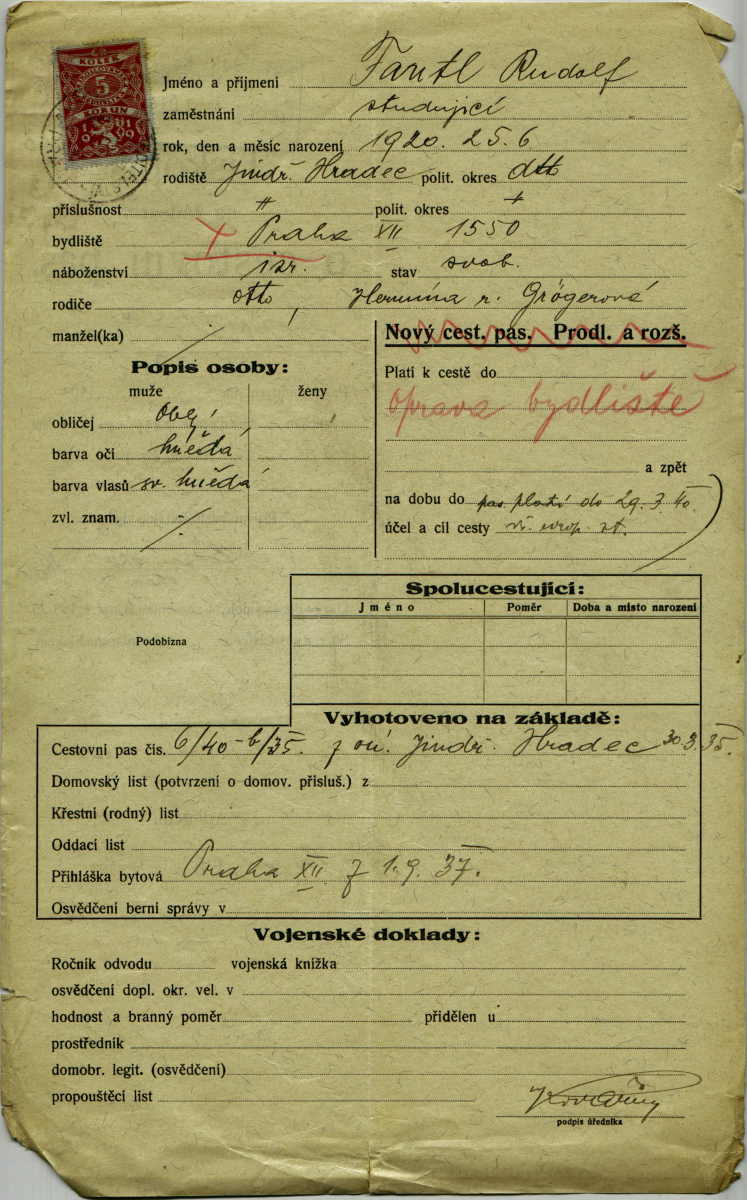 KOLEK
5
KORUN
19 19
Jméno a příjmení Fantl Rudolf
zaměstnání studující
rok, den a měsíc narození 1920. 25. 6
rodiště Jindř. Hradec polit. okres dtto
příslušnost " polit. okres "
bydliště × Praha XII 1550
náboženství isr. stav svob.
rodiče Otto, Hermína r. Grögerová
manžel(ka) /
Nový cest. pas. Prodl. a rozš.
Popis osoby:
muže ženy
Platí k cestě do
oprava bydliště
obličej obl.
barva očí hnědá
barva vlasů sv. hnědá
zvl. znam. /
a zpět
na dobu do pas platí do 29. 3. 40.
účel a cíl cesty vš. evrop. st.
Spolucestující:
Jméno Poměr Doba a místo narození
Podobizna
Vyhotoveno na základě:
Cestovní pas čís. 6/40-b/35. z Jindř. Hradec 30. 3. 35.
Domovský list (potvrzení o domov. přísluš.) z
Křestní (rodný) list
Oddací list
Přihláška bytová Praha XII z 1. 9. 37.
Osvědčení berní správy v
Vojenské doklady:
Ročník odvodu vojenská knížka
osvědčení dopl. okr. vel. v
hodnost a branný poměr přidělen u
prostředník
domobr. legit. (osvědčení)
propouštěcí list
podpis úředníka